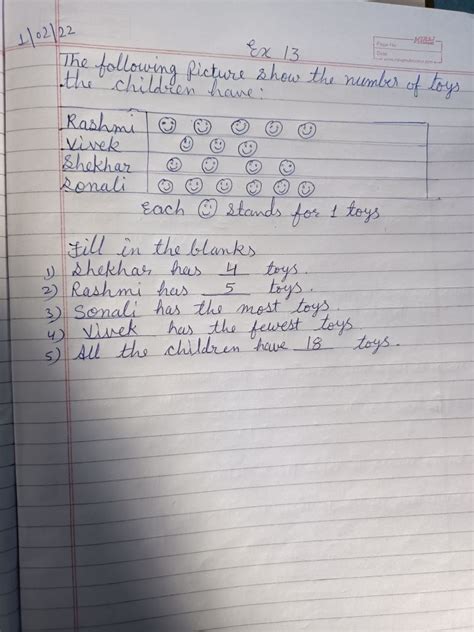 1/02/22
Ex 13
Page No.
Date
The following Picture show the number of toys
the children have:
Rashmi ☺ ☺ ☺ ☺ ☺
Vivek ☺ ☺ ☺
Shekhar ☺ ☺ ☺ ☺
Sonali ☺ ☺ ☺ ☺ ☺ ☺
Each ☺ stands for 1 toys
Fill in the blanks
1) Shekhar has 4 toys.
2) Rashmi has 5 toys.
3) Sonali has the most toys.
4) Vivek has the fewest toys
5) All the children have 18 toys.